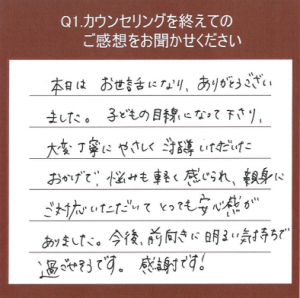 Q1.カウンセリングを終えての
ご感想をお聞かせください
本日は お世話になり、ありがとうござい
ました。子どもの目線になって下さり、
大変丁寧に やさしく ご指導いただいた
おかげで、悩みも軽く感じられ、親身に
ご対応いただいて とっても安心感が
ありました。今後、前向きに 明るい気持ちで
過ごせそうです。 感謝です!